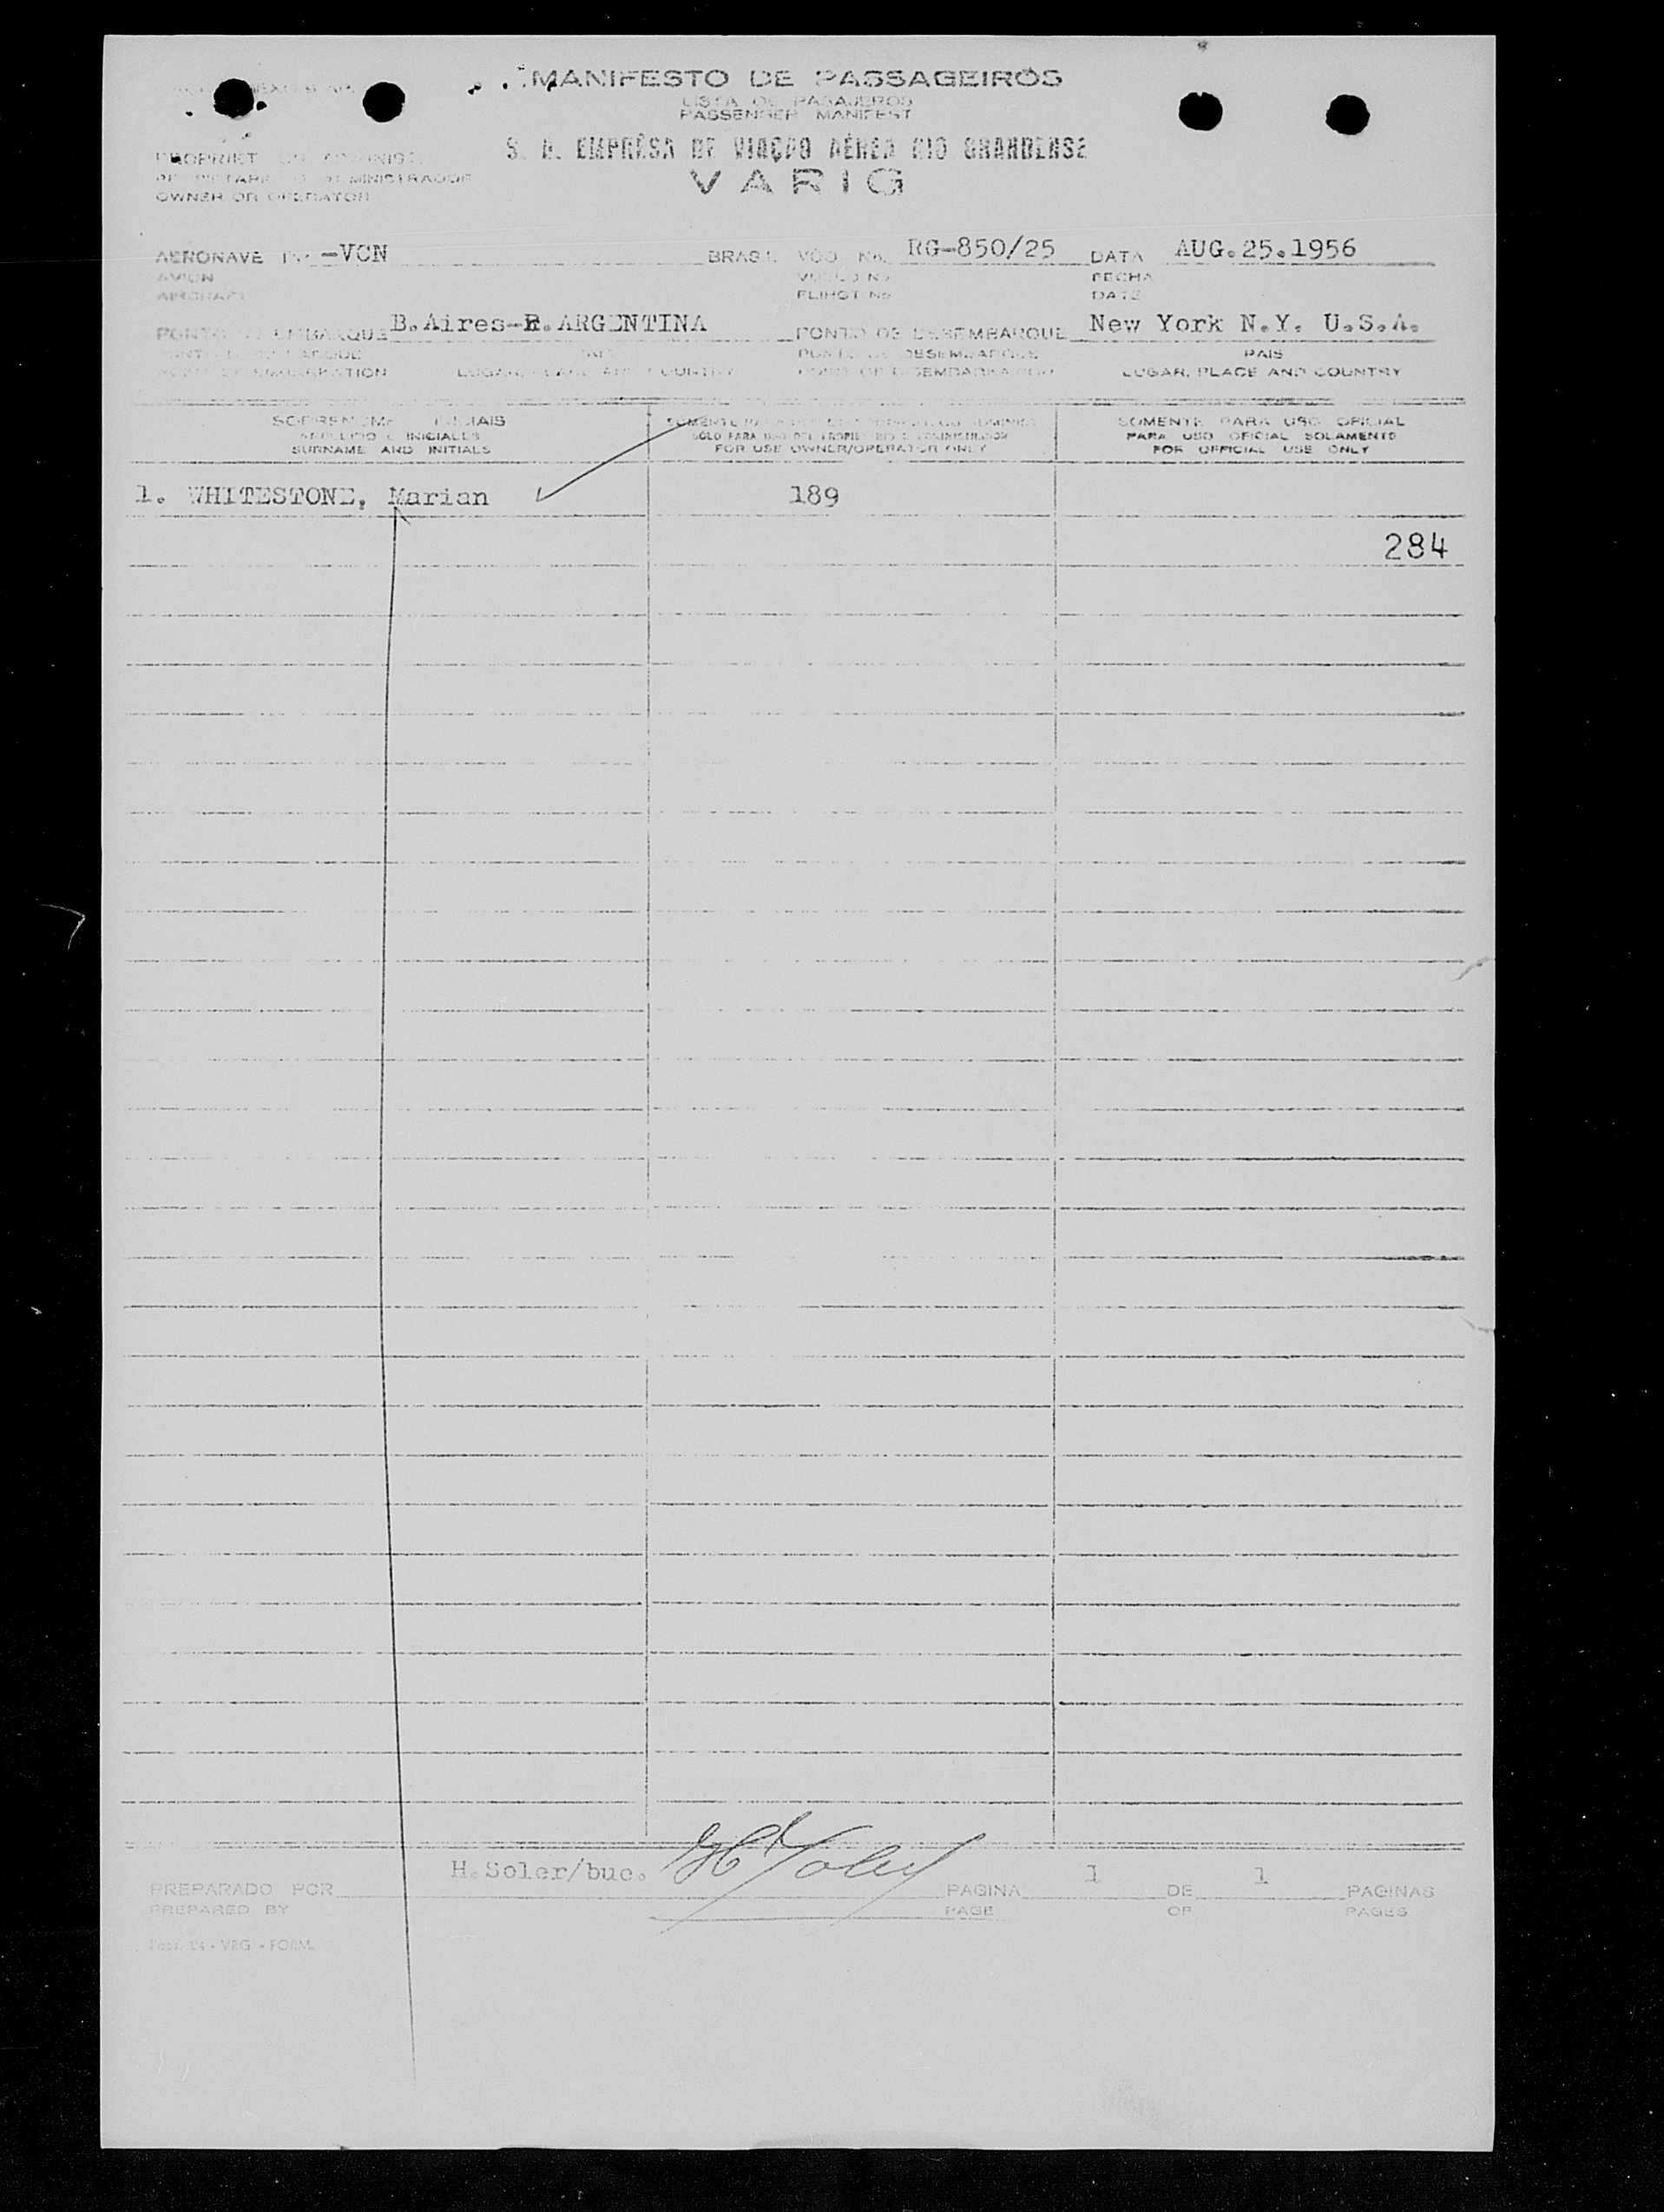 MANIFESTO DE PASSAGEIROS
LISTA DE PASAJEROS
PASSENGER MANIFEST
S. A. EMPRÊSA DE VIAÇÃO AÉREA RIO GRANDENSE
VARIG
OWNER OR OPERATOR
AERONAVE -VCN BRASIL VÔO No. RG-850/25 DATA AUG.25.1956
AVION VUELO No. FECHA
AIRCRAFT FLIHGT No. DATE
PONTO DE EMBARQUE B.Aires-R.ARGENTINA PONTO DE DESEMBARQUE New York N.Y. U.S.A.
PUNTO DE DESEMBARQUE PAIS
LUGAR, PLACE AND COUNTRY POINT OF LUGAR, PLACE AND COUNTRY
SOBRENOME INICIAIS SOMENTE SOMENTE PARA USO OFICIAL
APELLIDO E INICIALES SOLO PARA USO DEL PARA USO OFICIAL SOLAMENTE
SURNAME AND INITIALS FOR USE OWNER/OPERATOR ONLY FOR OFFICIAL USE ONLY
1. WHITESTONE, Marian 189
284
H.Soler/bue. 1 1
PREPARADO POR PAGINA DE PAGINAS
PREPARED BY PAGE OF PAGES
VRG - FORM.